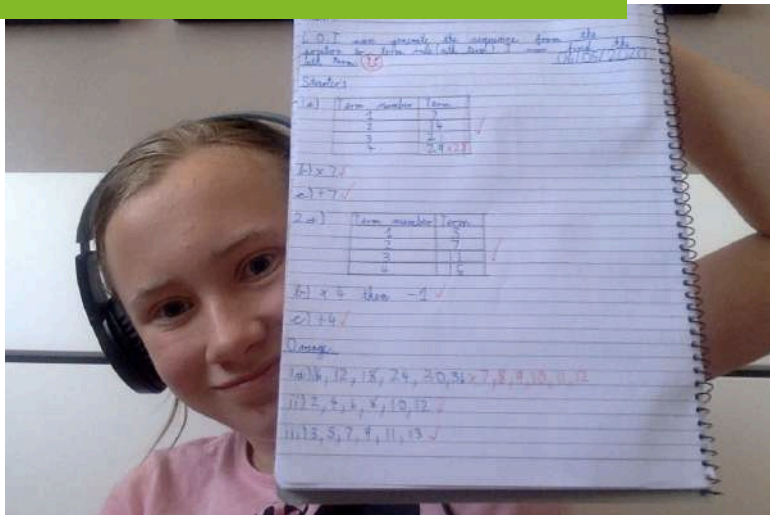 L.O. I can generate the sequence from the
position to term rule (nth term) I can find the
nth term
Starters
1a) Term number Term
1 7
2 14
3 21
4 29 x28
b) x 7 ✓
c) +7 ✓
2a) Term number Term
1 3
2 7
3 11
4 15
b) x 4 then -1 ✓
c) +4 ✓
Orange
i) 6, 12, 18, 24, 30, 36 x 7, 8, 9, 10, 11, 12
ii) 2, 4, 6, 8, 10, 12 ✓
iii) 3, 5, 7, 9, 11, 13 ✓